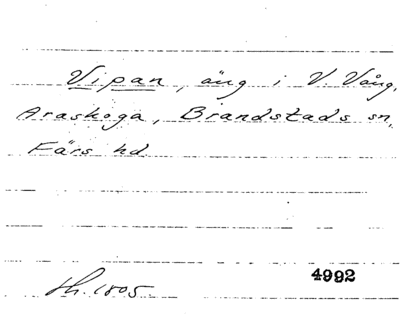 Vipan, äng i V. Vång,
Araskoga, Brandstads sn,
Färs hd.
Sh. 1805.
4992